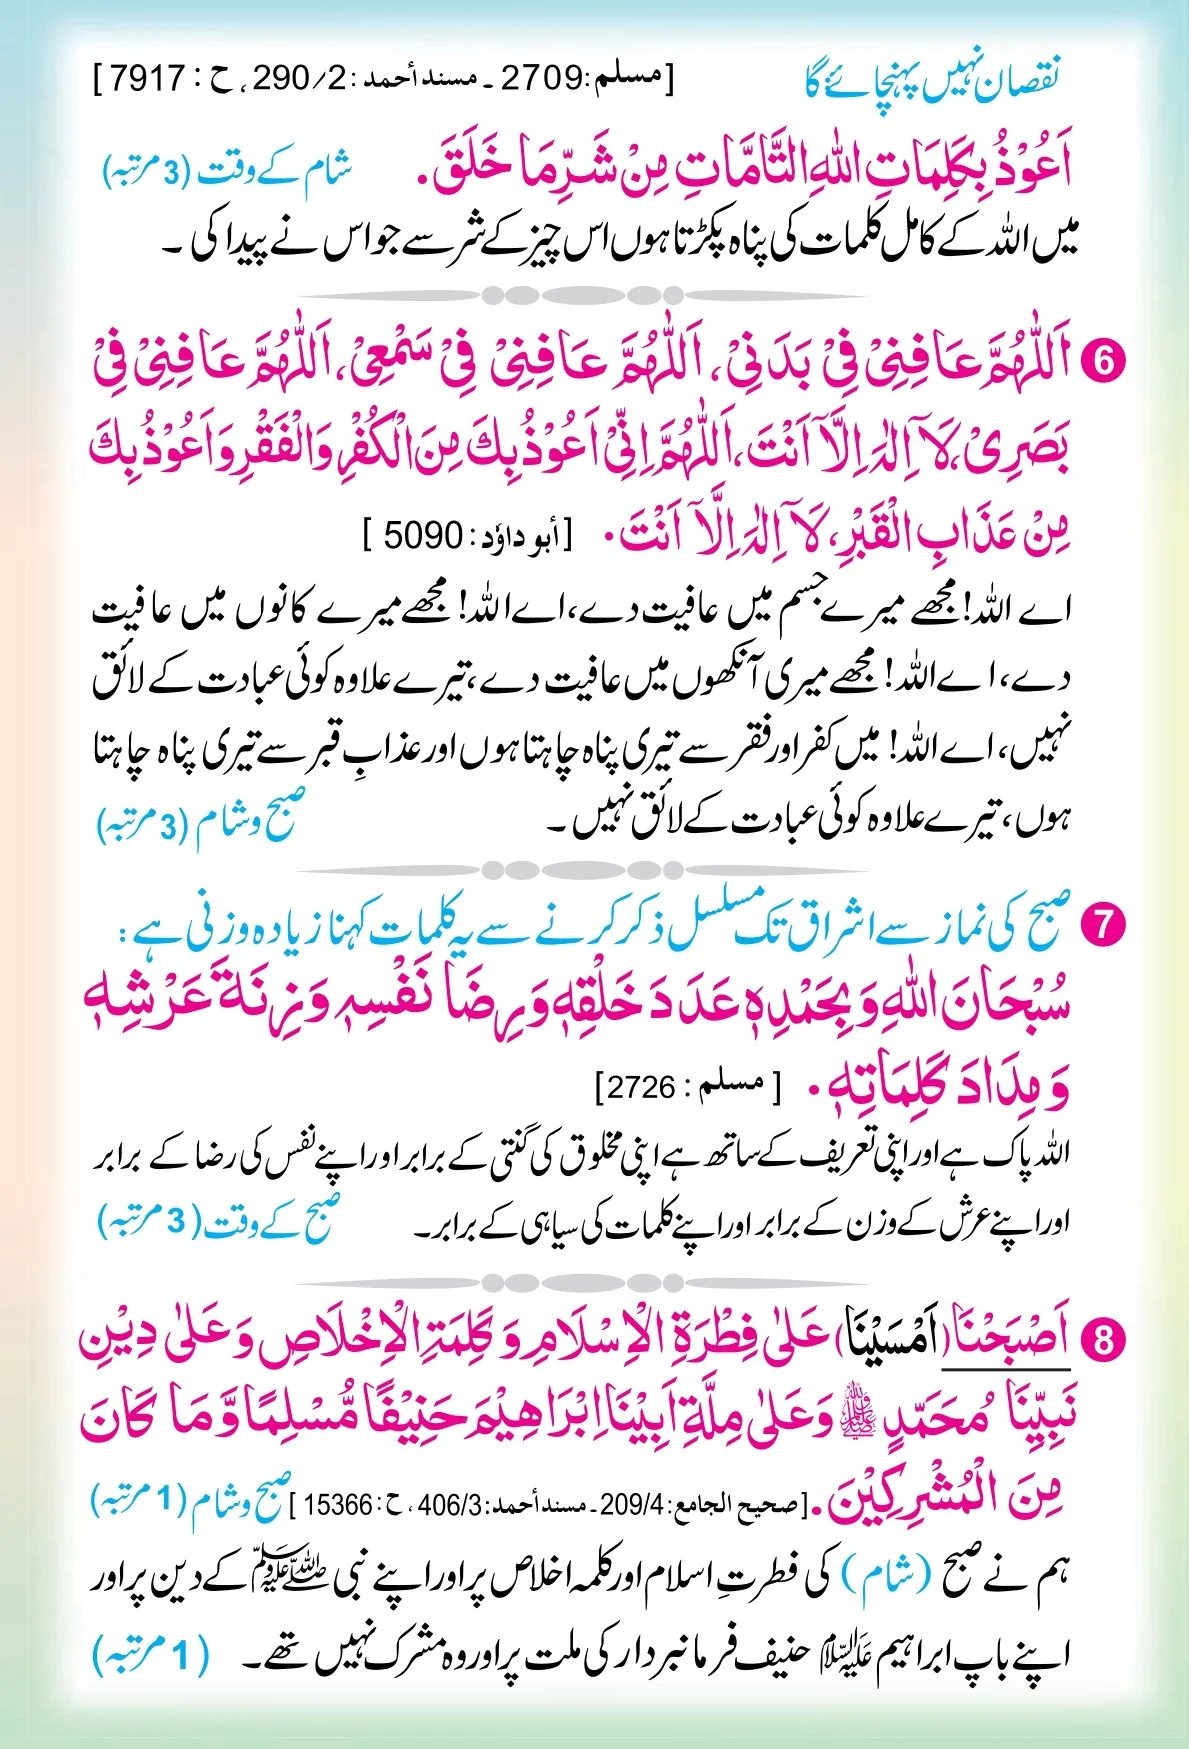 نقصان نہیں پہنچائے گا [مسلم:2709 ۔ مسند أحمد :290/2، ح : 7917]
اَعُوْذُ بِكَلِمَاتِ اللّٰهِ التَّامَّاتِ مِنْ شَرِّ مَا خَلَقَ. شام کے وقت (3 مرتبہ)
میں اللہ کے کامل کلمات کی پناہ پکڑتا ہوں اس چیز کے شر سے جو اس نے پیدا کی ۔
6 اَللّٰهُمَّ عَافِنِيْ فِيْ بَدَنِيْ، اَللّٰهُمَّ عَافِنِيْ فِيْ سَمْعِيْ، اَللّٰهُمَّ عَافِنِيْ فِيْ
بَصَرِيْ، لَآ اِلٰهَ اِلَّآ اَنْتَ، اَللّٰهُمَّ اِنِّيْ اَعُوْذُ بِكَ مِنَ الْكُفْرِ وَالْفَقْرِ وَاَعُوْذُ بِكَ
مِنْ عَذَابِ الْقَبْرِ، لَآ اِلٰهَ اِلَّآ اَنْتَ. [أبو داؤد : 5090 ]
اے اللہ! مجھے میرے جسم میں عافیت دے، اے اللہ! مجھے میرے کانوں میں عافیت
دے، اے اللہ! مجھے میری آنکھوں میں عافیت دے، تیرے علاوہ کوئی عبادت کے لائق
نہیں، اے اللہ! میں کفر اور فقر سے تیری پناہ چاہتا ہوں اور عذابِ قبر سے تیری پناہ چاہتا
ہوں، تیرے علاوہ کوئی عبادت کے لائق نہیں ۔ صبح و شام (3 مرتبہ)
7 صبح کی نماز سے اشراق تک مسلسل ذکر کرنے سے یہ کلمات کہنا زیادہ وزنی ہے :
سُبْحَانَ اللّٰهِ وَبِحَمْدِهٖ عَدَدَ خَلْقِهٖ وَرِضَا نَفْسِهٖ وَزِنَةَ عَرْشِهٖ
وَمِدَادَ كَلِمَاتِهٖ. [ مسلم : 2726]
اللہ پاک ہے اور اپنی تعریف کے ساتھ ہے اپنی مخلوق کی گنتی کے برابر اور اپنے نفس کی رضا کے برابر
اور اپنے عرش کے وزن کے برابر اور اپنے کلمات کی سیاہی کے برابر۔ صبح کے وقت (3 مرتبہ)
8 اَصْبَحْنَا (اَمْسَيْنَا) عَلٰى فِطْرَةِ الْاِسْلَامِ وَكَلِمَةِ الْاِخْلَاصِ وَعَلٰى دِيْنِ
نَبِيِّنَا مُحَمَّدٍ ﷺ وَعَلٰى مِلَّةِ اَبِيْنَا اِبْرَاهِيْمَ حَنِيْفًا مُّسْلِمًا وَّمَا كَانَ
مِنَ الْمُشْرِكِيْنَ. [صحيح الجامع:209/4۔ مسند أحمد:406/3، ح:15366] صبح و شام (1 مرتبہ)
ہم نے صبح (شام) کی فطرتِ اسلام اور کلمہ اخلاص پر اور اپنے نبی ﷺ کے دین پر اور
اپنے باپ ابراہیم علیہ السلام حنیف فرمانبردار کی ملت پر اور وہ مشرک نہیں تھے۔ (1 مرتبہ)